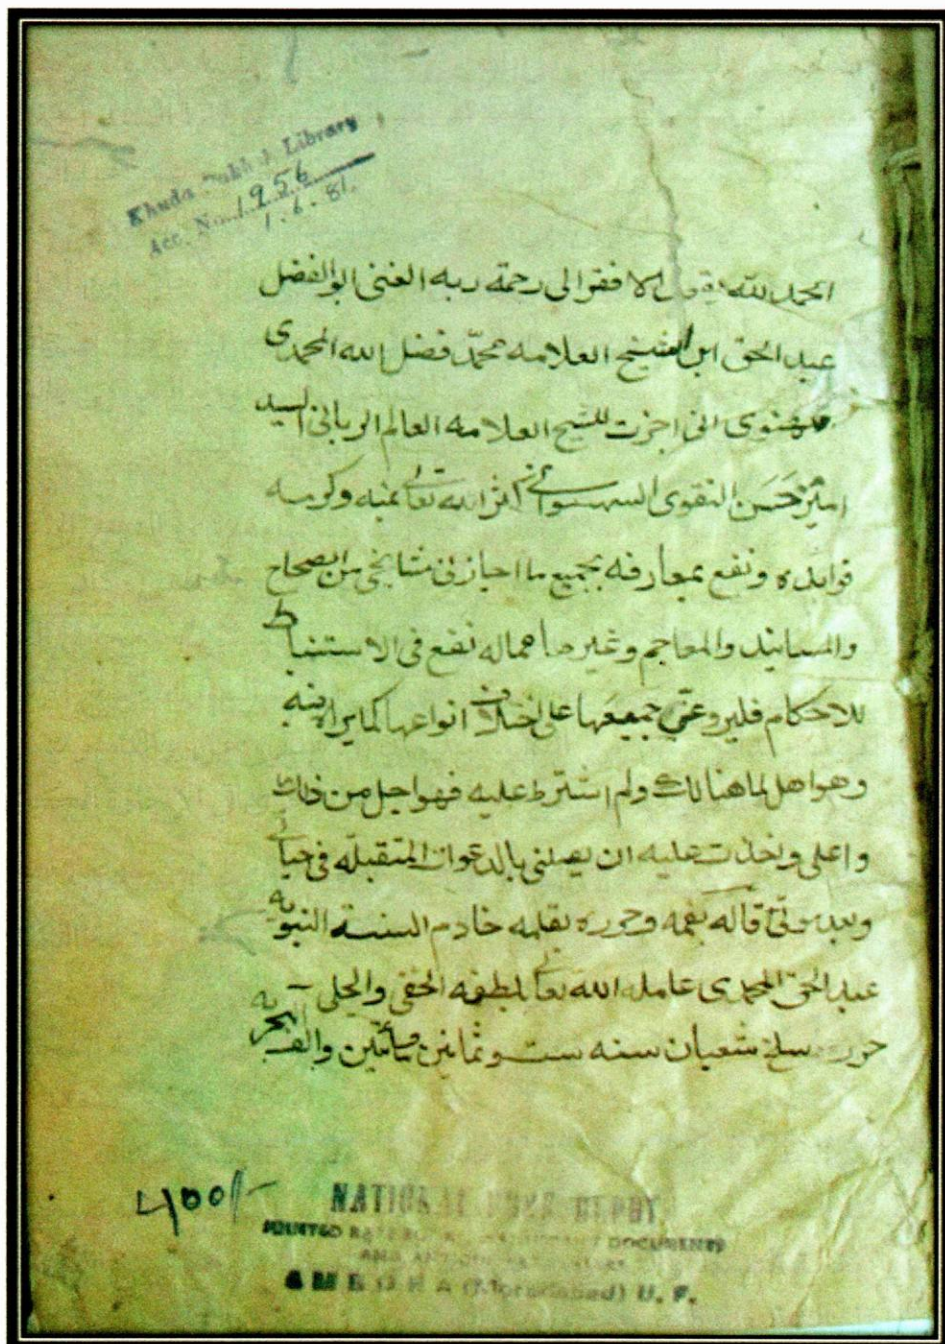 Khuda Bakhsh Library
Acc. No. 1956
1.6.81.
الحمد لله يقول الافقر الى رحمة ربه الغنى ابو الفضل
عبد الحق ابن الشيخ العلامه محمّد فضل الله المحمدى
انى اجزت للشيخ العلامه العالم الربانى السيد
امير حَسَن النقوى السهسوانى اكثر الله تعالى بمنه وكرمه
فوايده ونفع بمعارفه بجميع ما اجازنى مشايخى من الصحاح
والمسانيد والمعاجم وغيرها مماله نفع فى الاستنباط
للاحكام فليروعنّى جميعَها على اختلاف انواعها كما يراينه
وهو اهل لما هنالك ولم اشترط عليه فهو اجل من ذلك
واعلى واخذت عليه ان يصلنى بالدعوات المتقبله فى حياتى
وبعد موتى قاله بفمه وحرره بقلمه خادم السنة النبويه
عبد الحق المحمدى عامله الله تعالى بلطفه الخفى والجلى
حرره سلخ شعبان سنه ست وثمانين ومأتين والف الهجريه
400/-
NATIONAL DEPOT
PRINTED DOCUMENTS
AMROHA (Moradabad) U. P.